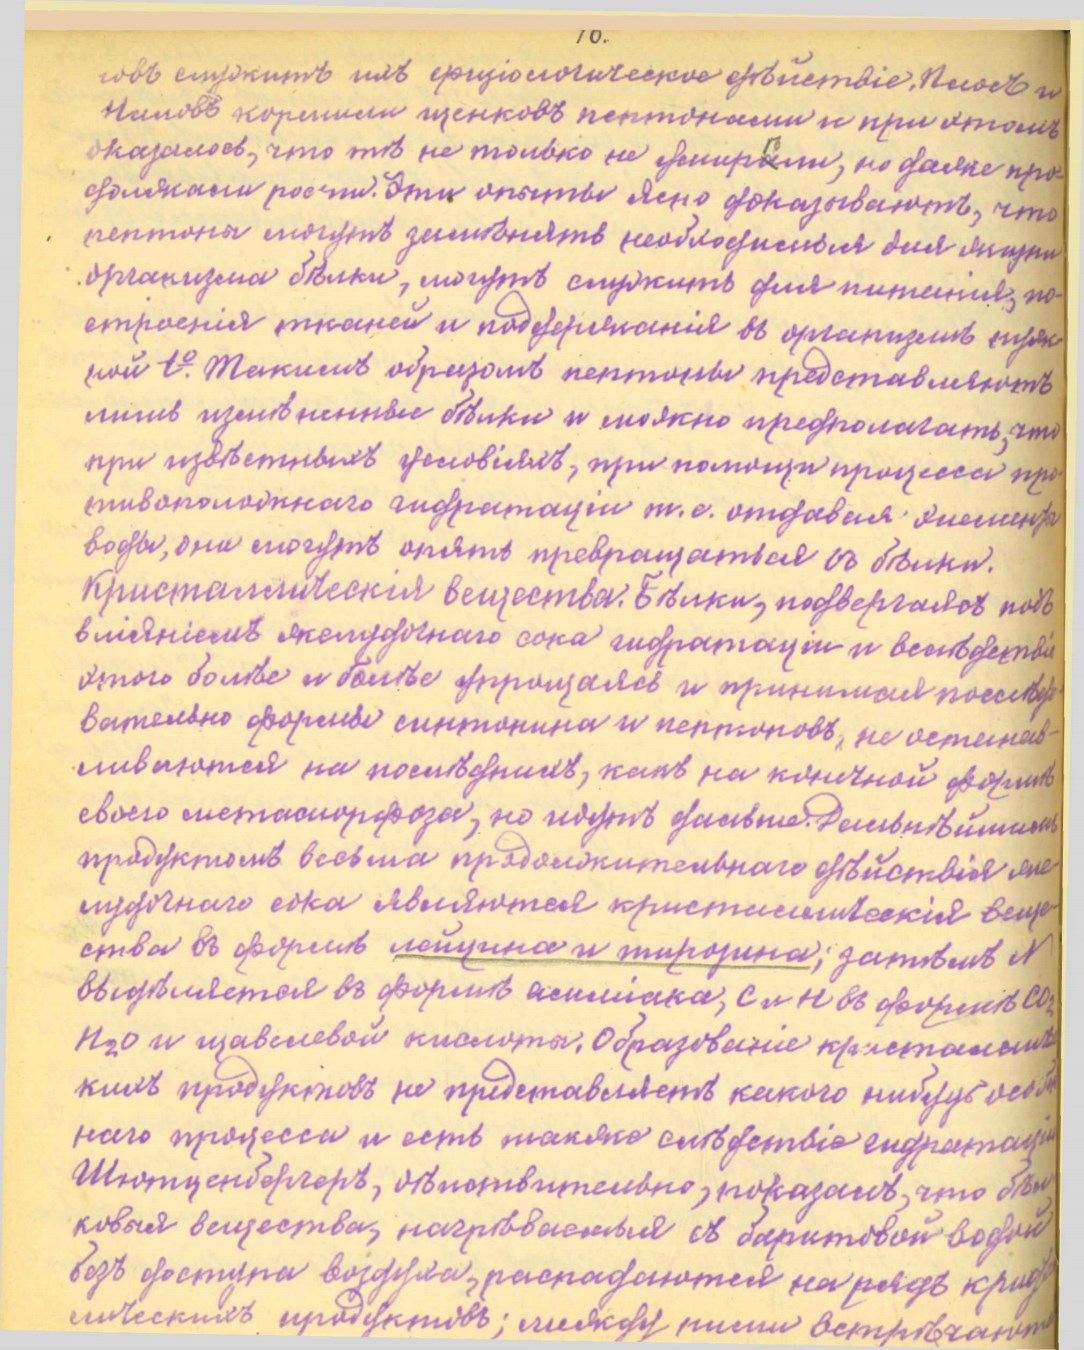 76.
товъ служитъ ихъ физіологическое дѣйствіе. Плосъ и
Наловъ кормили щенковъ пептонами и при этомъ
оказалось, что тѣ не только не умирали, но даже про-
должали рости. Эти опыты ясно доказываютъ, что
пептоны могутъ замѣнять необходимыя для жизни
организма бѣлки, могутъ служить для питанія, по-
строенія тканей и поддержанія въ организмѣ нуж-
ной t°. Такимъ образомъ пептоны представляютъ
лишь измѣненные бѣлки и можно предполагать, что
при извѣстныхъ условіяхъ, при помощи процесса про
тивоположнаго гидратаціи т.е. отдавая элементы
воды, они могутъ опять превращаться въ бѣлки.
Кристаллическія вещества. Бѣлки, подвергаясь подъ
вліяніемъ желудочнаго сока гидратаціи и вслѣдствіе
этого болѣе и болѣе упрощаясь и принимая послѣдо-
вательно формы синтонина и пептоновъ, не останав-
ливаются на послѣднихъ, какъ на конечной формѣ
своего метаморфоза, но идутъ дальше. Дальнѣйшимъ
продуктомъ весьма продолжительнаго дѣйствія же
лудочнаго сока являются кристаллическія веще-
ства въ формѣ лейцина и тирозина; затѣмъ N
выдѣляется въ формѣ амміака, C и H въ формѣ CO2
H2O и щавелевой кислоты. Образованіе кристалличес
кихъ продуктовъ не представляетъ какого нибудь особен
наго процесса и есть также слѣдствіе гидратаціи
Шютценбергеръ, дѣйствительно, показалъ, что бѣл
ковыя вещества, нагрѣваемыя съ баритовой водой
безъ доступа воздуха, распадаются на рядъ кристал
лическихъ продуктовъ; между ними встрѣчаются